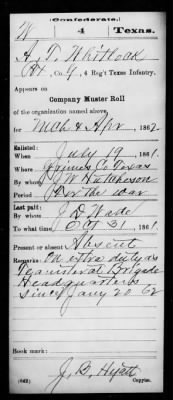 (Confederate.)
W 4 Texas.
A. T. Whitlock
Pvt, Co. G, 4 Reg't Texas Infantry.
Appears on
Company Muster Roll
of the organization named above,
for Mch & Apr, 1862.
Enlisted:
When July 19, 1861.
Where Grimes Co Texas
By whom J. W. Hutcheson
Period For the war
Last paid:
By whom J. D. Wade
To what time Oct 31, 1861.
Present or absent Absent
Remarks: On extra duty as
Teamster at Brigade
Headquarters
Since Jany 20 '62
Book mark:
J. B. Hyatt
(642) Copyist.